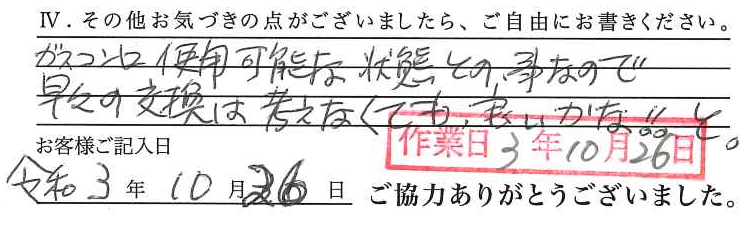 Ⅳ．その他お気づきの点がございましたら、ご自由にお書きください。
ガスコンロ使用可能な状態との事なので
早々の交換は考えなくても、良いかな!!と。
お客様ご記入日
作業日 3年10月26日
令和3年10月26日 ご協力ありがとうございました。